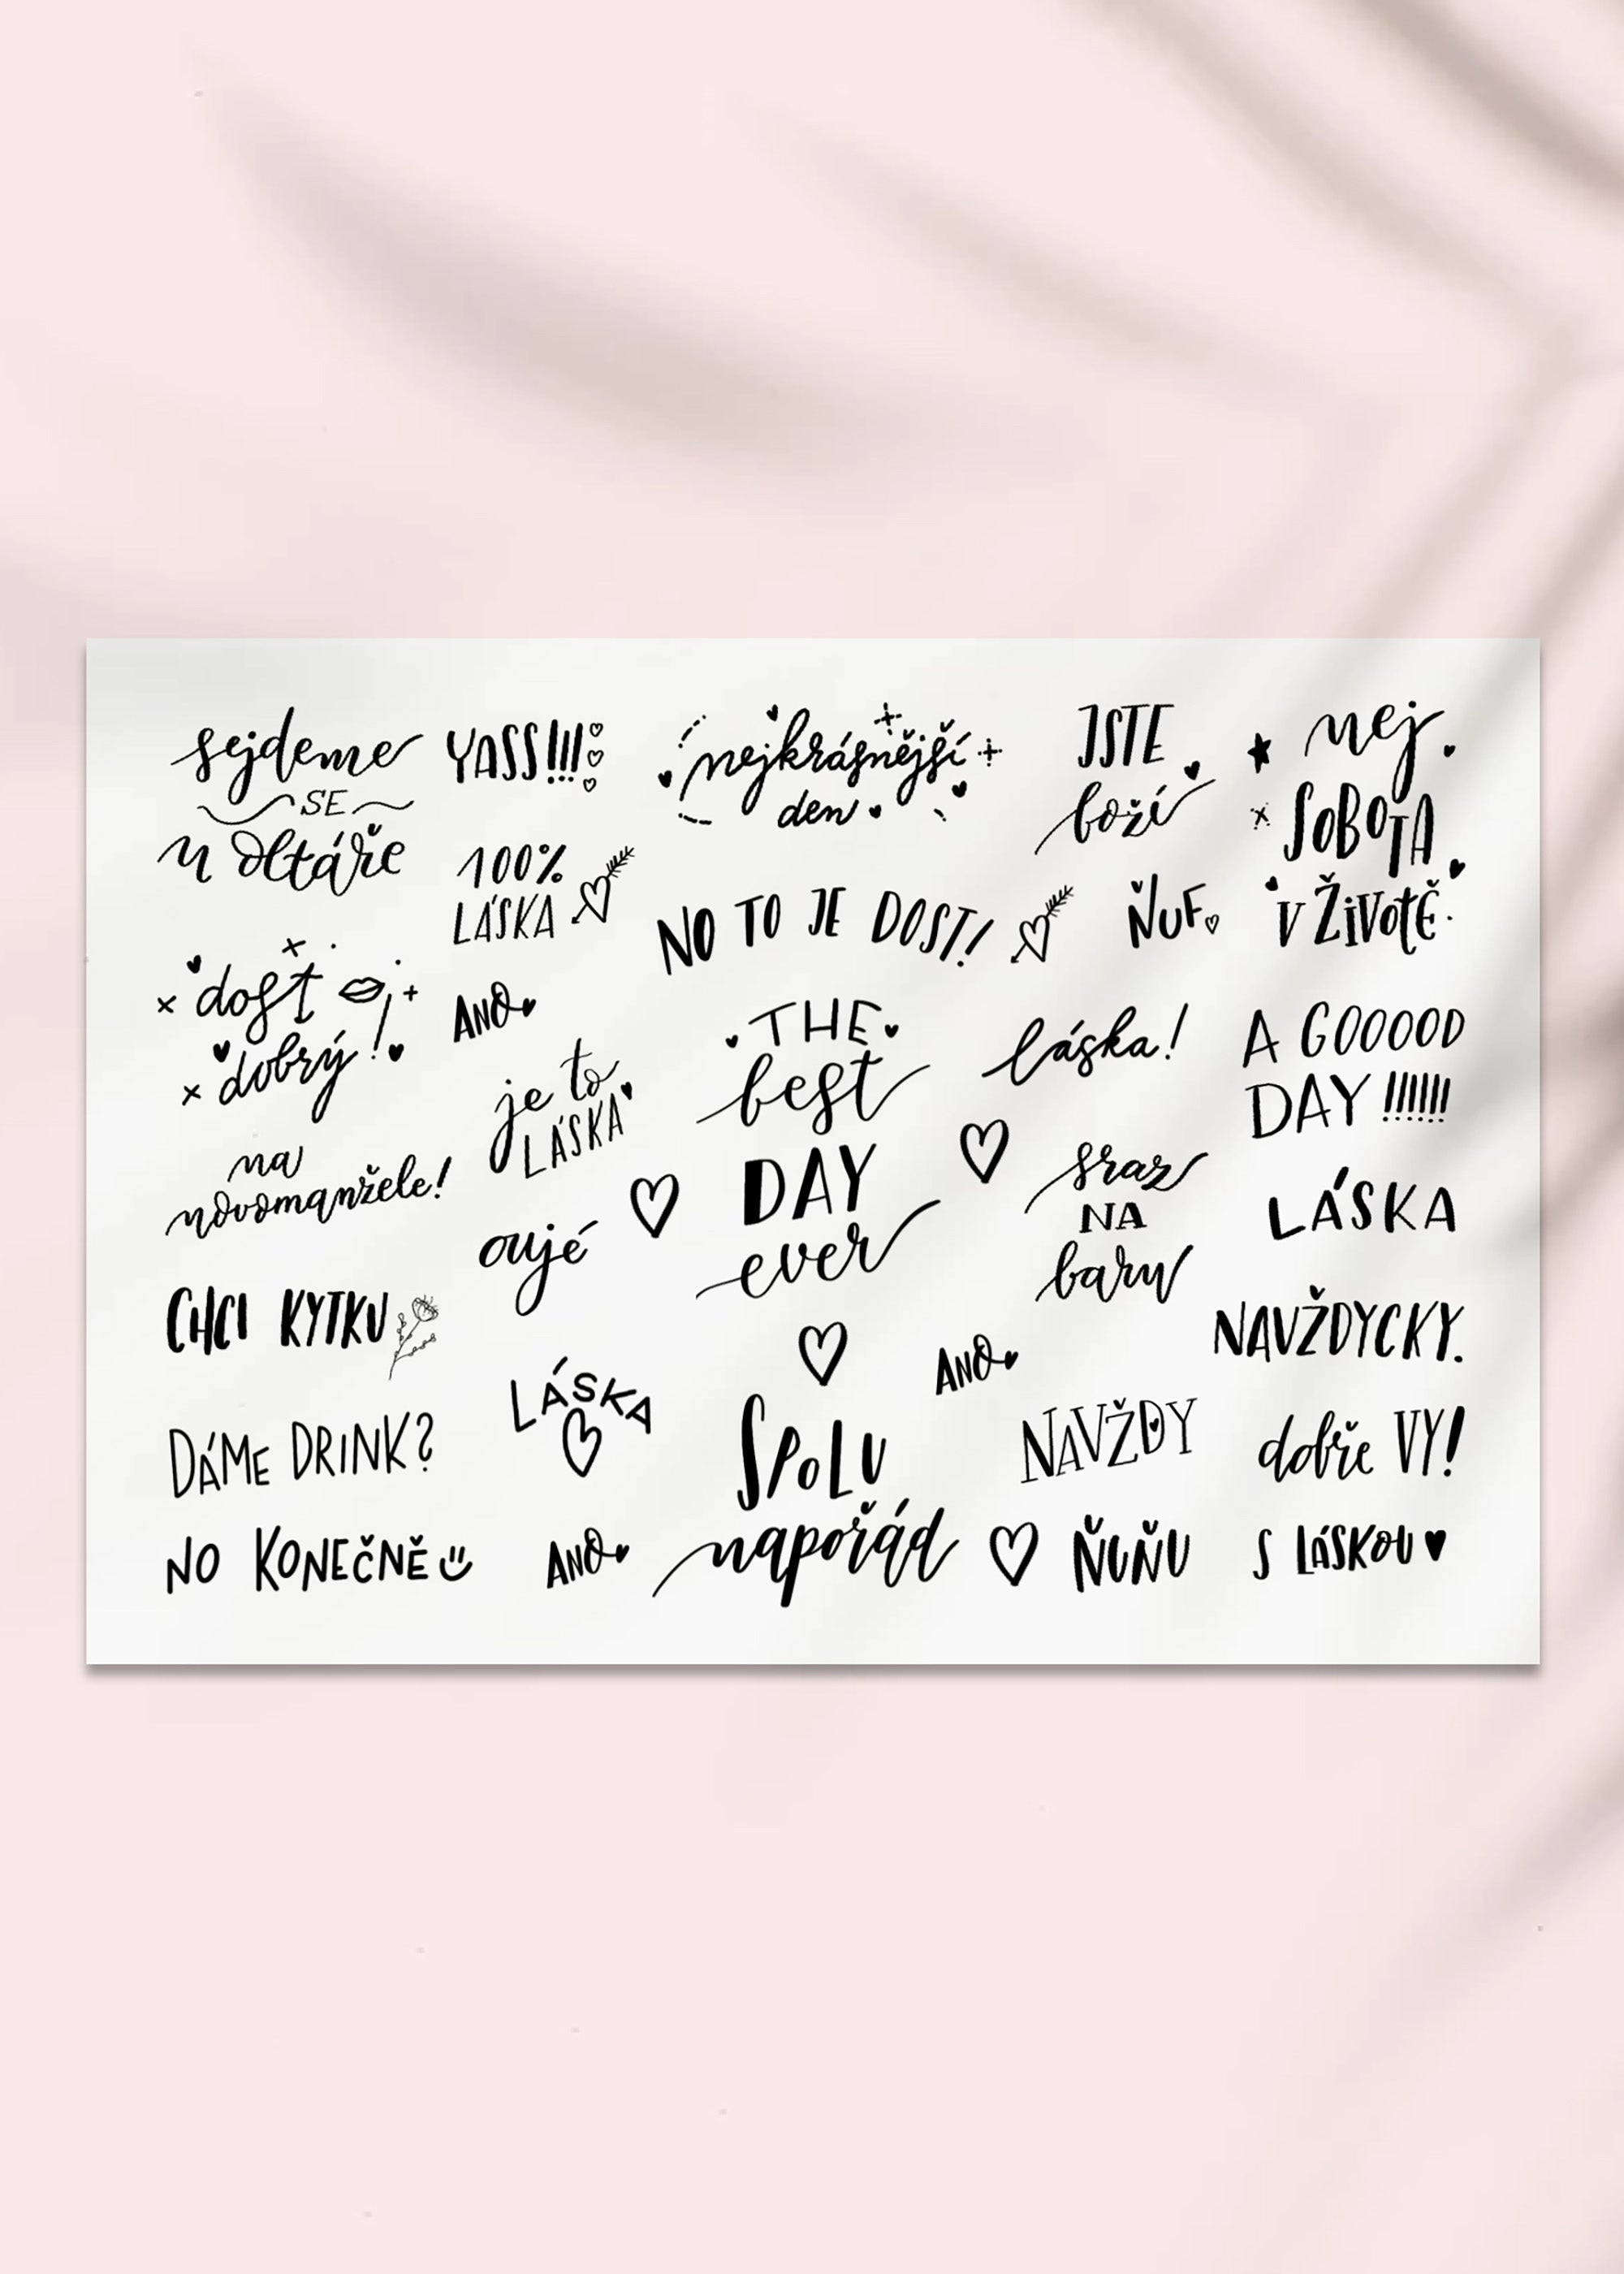 sejdeme
SE
u oltáře
YASS!!!
nejkrásnější
den
JSTE
boží
nej
SOBOTA
V ŽIVOTĚ
100%
LÁSKA
NO TO JE DOST!
ŇUF
dost
dobrý!
ANO
THE
best
DAY
ever
láska!
A GOOOOD
DAY!!!!!!
je to
LÁSKA
na
novomanžele!
oujé
sraz
NA
baru
LÁSKA
CHCI KYTKU
NAVŽDYCKY.
LÁSKA
ANO
DÁME DRINK?
SPOLU
napořád
NAVŽDY
dobře VY!
NO KONEČNĚ
ANO
ŇUŇU
S LÁSKOU